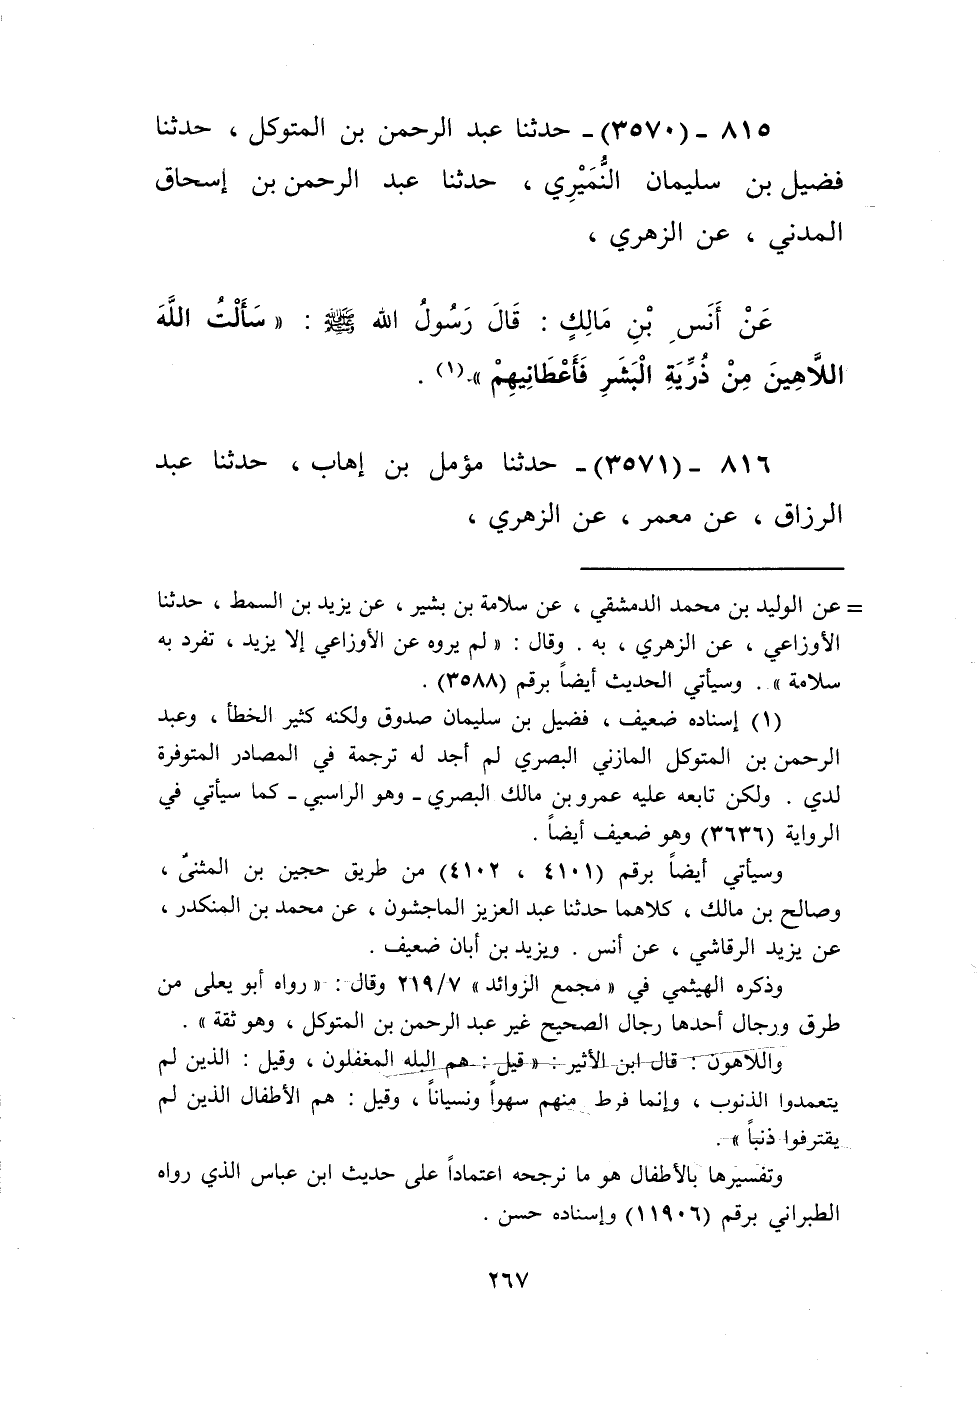 ٨١٥ ـ (٣٥٧٠) ـ حدثنا عبد الرحمن بن المتوكل ، حدثنا
فضيل بن سليمان النُّمَيْرِي ، حدثنا عبد الرحمن بن إسحاق
المدني ، عن الزهري ،
عَنْ أَنَسِ بْنِ مَالِكٍ : قَالَ رَسُولُ الله ﷺ : « سَأَلْتُ اللَّهَ
اللَّاهِينَ مِنْ ذُرِّيَةِ الْبَشَرِ فَأَعْطَانِيهِمْ »(١) .
٨١٦ ـ (٣٥٧١) ـ حدثنا مؤمل بن إهاب ، حدثنا عبد
الرزاق ، عن معمر ، عن الزهري ،
= عن الوليد بن محمد الدمشقي ، عن سلامة بن بشير ، عن يزيد بن السمط ، حدثنا
الأوزاعي ، عن الزهري ، به . وقال : « لم يروه عن الأوزاعي إلا يزيد ، تفرد به
سلامة » . وسيأتي الحديث أيضاً برقم (٣٥٨٨) .
(١) إسناده ضعيف ، فضيل بن سليمان صدوق ولكنه كثير الخطأ ، وعبد
الرحمن بن المتوكل المازني البصري لم أجد له ترجمة في المصادر المتوفرة
لدي . ولكن تابعه عليه عمرو بن مالك البصري ـ وهو الراسبي ـ كما سيأتي في
الرواية (٣٦٣٦) وهو ضعيف أيضاً .
وسيأتي أيضاً برقم (٤١٠١ ، ٤١٠٢) من طريق حجين بن المثنىٰ ،
وصالح بن مالك ، كلاهما حدثنا عبد العزيز الماجشون ، عن محمد بن المنكدر ،
عن يزيد الرقاشي ، عن أنس . ويزيد بن أبان ضعيف .
وذكره الهيثمي في « مجمع الزوائد » ٢١٩/٧ وقال : « رواه أبو يعلى من
طرق ورجال أحدها رجال الصحيح غير عبد الرحمن بن المتوكل ، وهو ثقة » .
واللاهون : قال ابن الأثير : « قيل : هم البله المغفلون ، وقيل : الذين لم
يتعمدوا الذنوب ، وإنما فرط منهم سهواً ونسياناً ، وقيل : هم الأطفال الذين لم
يقترفوا ذنباً » .
وتفسيرها بالأطفال هو ما نرجحه اعتماداً على حديث ابن عباس الذي رواه
الطبراني برقم (١١٩٠٦) وإسناده حسن .
٢٦٧